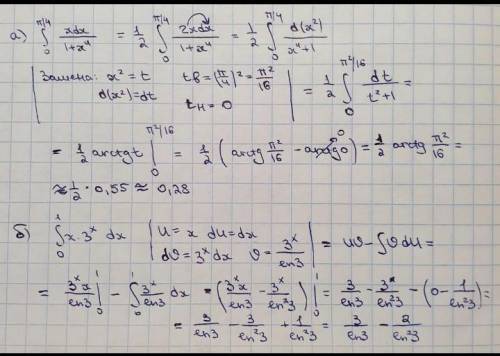 а) ∫₀^{π/4} xdx/(1+x⁴) = 1/2 ∫₀^{π/4} 2xdx/(1+x⁴) = 1/2 ∫₀^{π/4} d(x²)/(x⁴+1)
| Замена: x² = t tв = (π/4)² = π²/16 | = 1/2 ∫₀^{π²/16} dt/(t²+1) =
| d(x²) = dt tн = 0 |
= 1/2 arctgt |₀^{π²/16} = 1/2 (arctg π²/16 - arctg0) = 1/2 arctg π²/16 =
≈ 1/2 · 0,55 ≈ 0,28
б) ∫₀¹ x·3ˣ dx | U = x dU = dx = Uϑ - ∫ϑdU =
| dϑ = 3ˣdx ϑ = 3ˣ/ln3 |
= 3ˣx/ln3 |₀¹ - ∫₀¹ 3ˣ/ln3 dx = (3ˣx/ln3 - 3ˣ/ln²3) |₀¹ = 3/ln3 - 3ˣ/ln²3 - (0 - 1/ln²3) =
= 3/ln3 - 3/ln²3 + 1/ln²3 = 3/ln3 - 2/ln²3